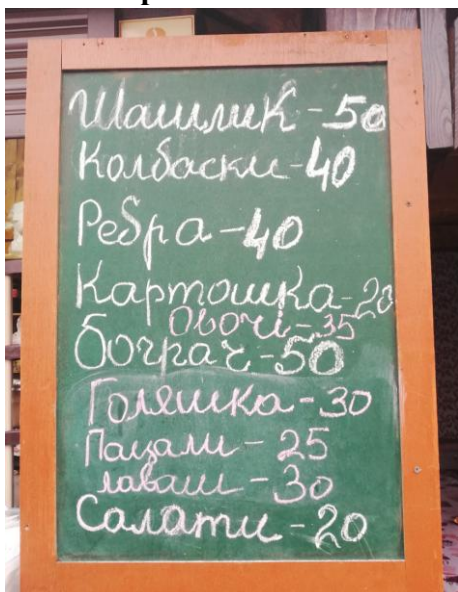 Шашлик - 50
Колбаски - 40
Ребра - 40
Картошка - 20
Овочі - 35
Бограч - 50
Голяшка - 30
Пацали - 25
лаваш - 30
Салати - 20